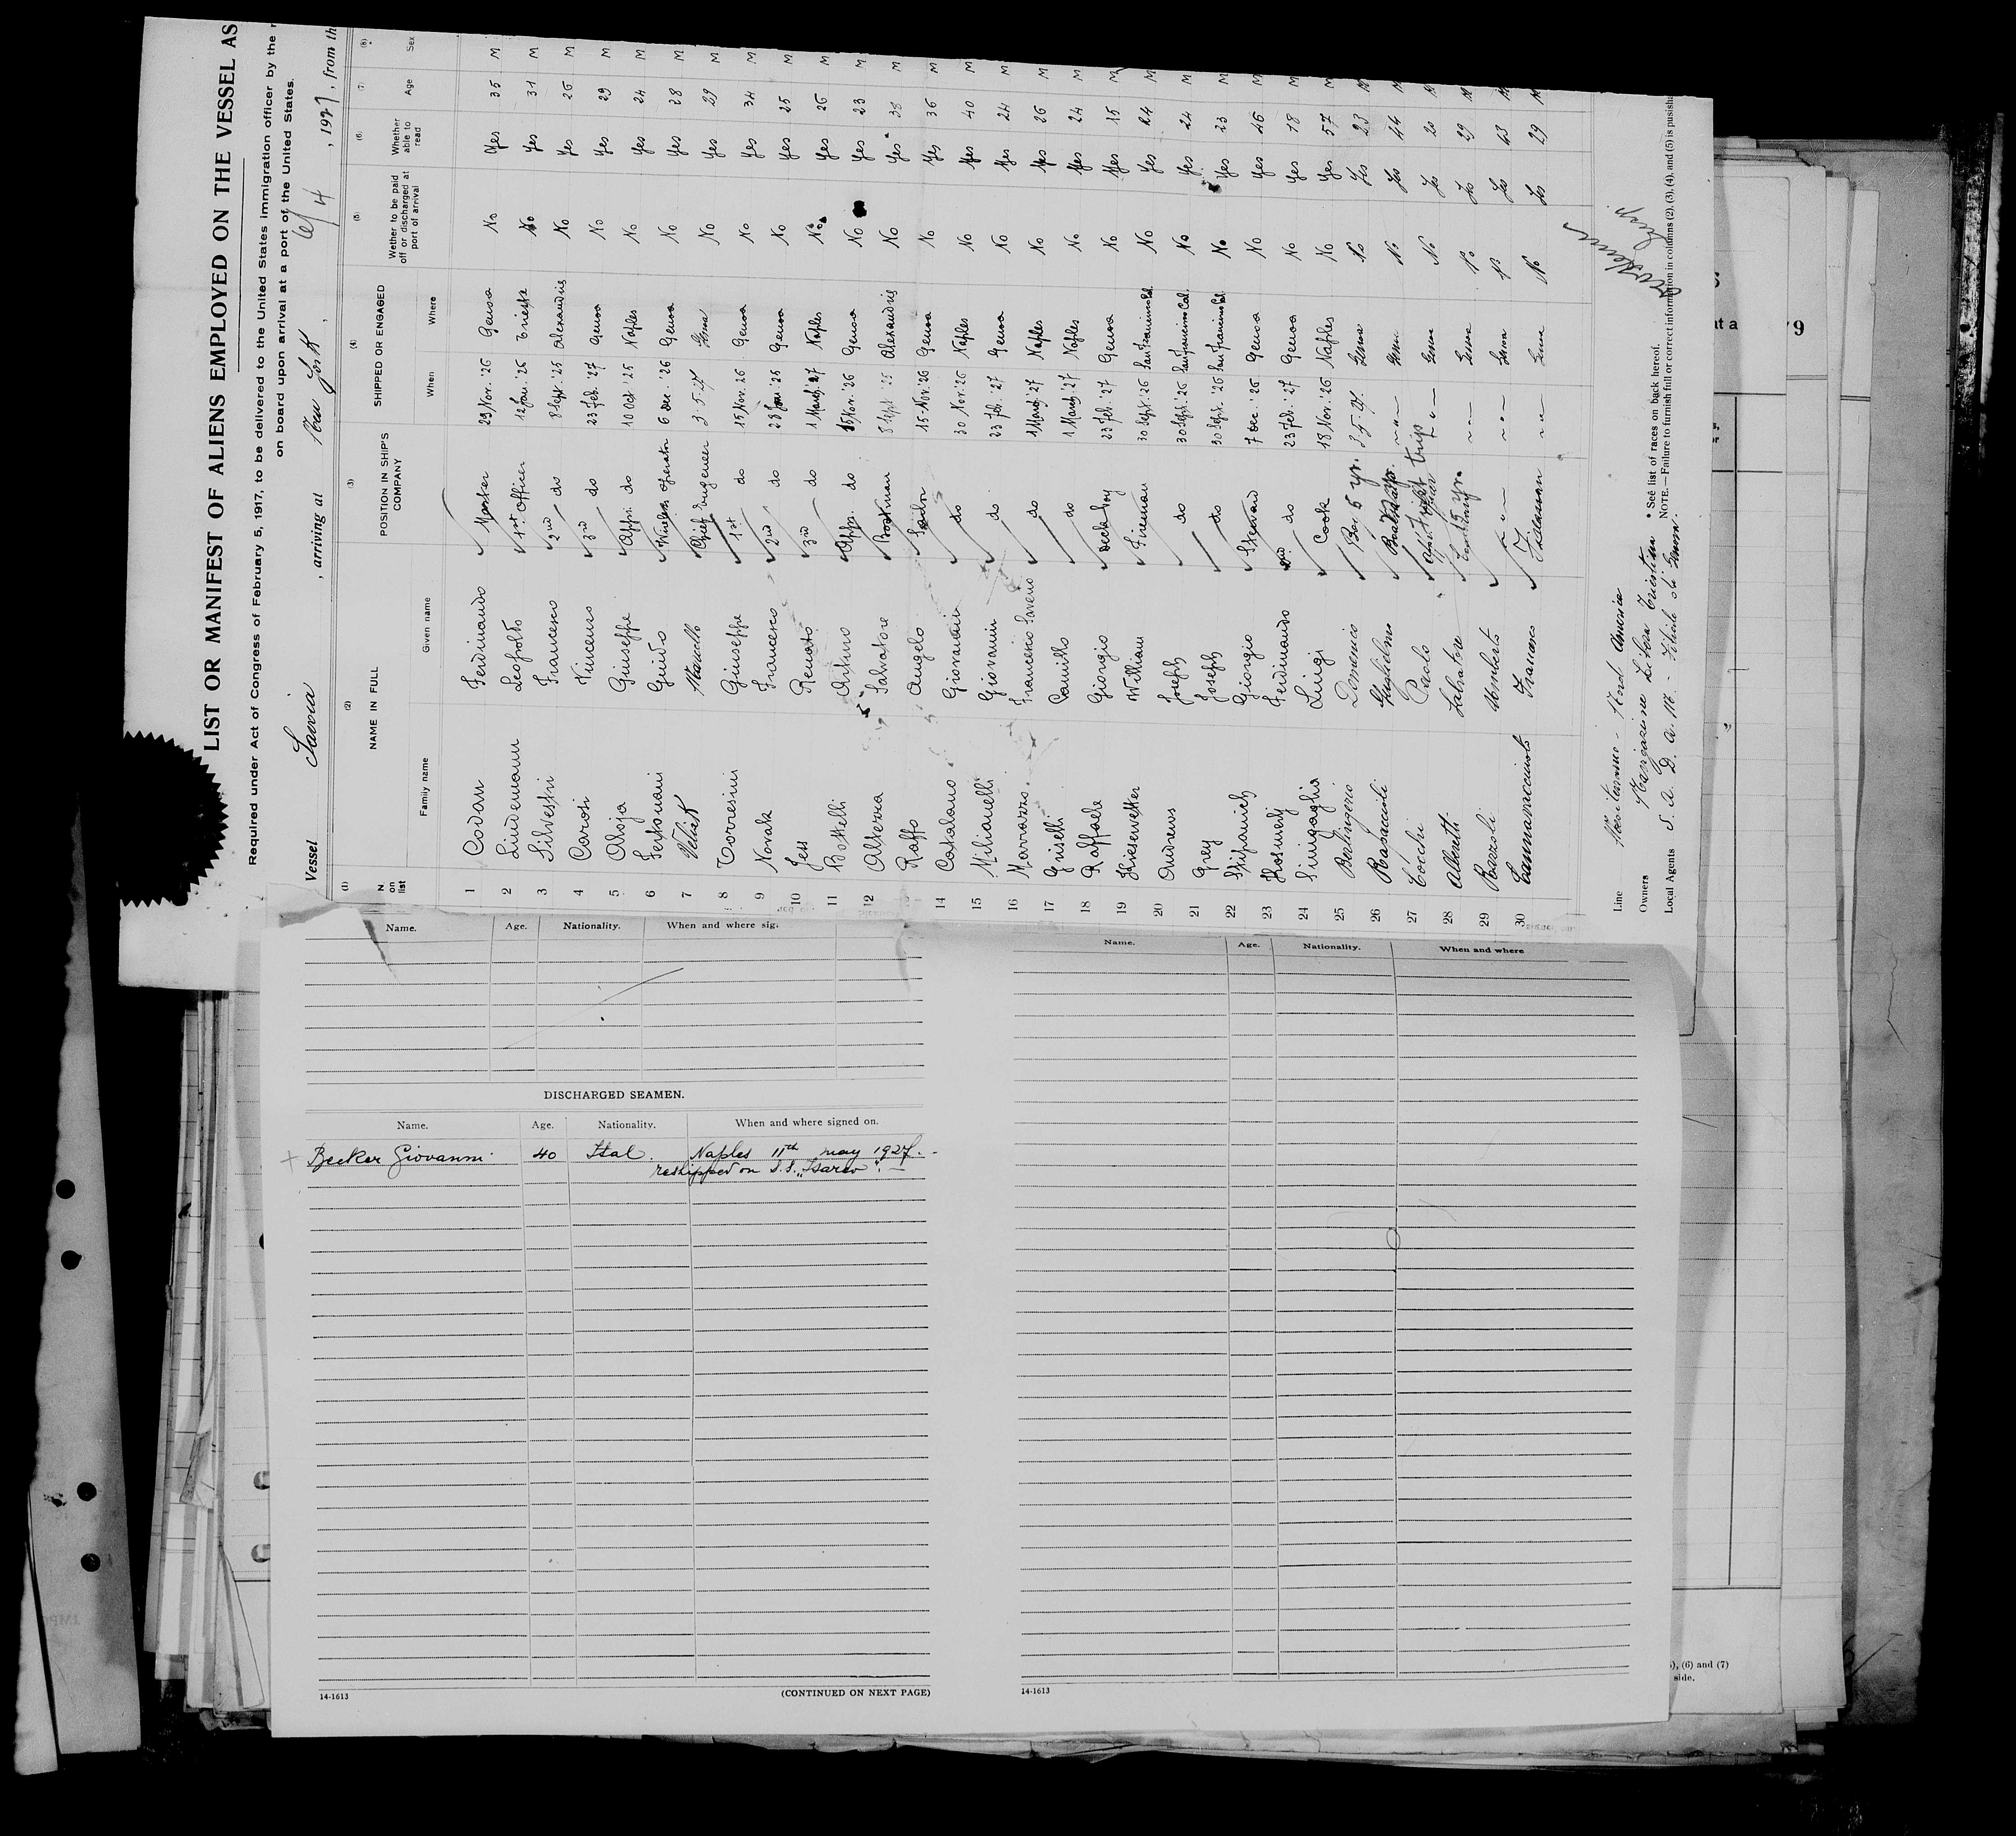 LIST OR MANIFEST OF ALIENS EMPLOYED ON THE VESSEL AS
Required under Act of Congress of February 5, 1917, to be delivered to the United States immigration officer by the
on board upon arrival at a port of the United States.
Vessel , arriving at New York , 6/4 , 1927, from th
(1) (2) (3) (4) (5) (6) (7) (8)
N on list NAME IN FULL POSITION IN SHIP'S COMPANY SHIPPED OR ENGAGED Wether to be paid off or discharged at port of arrival Whether able to read Age Sex
Family name Given name When Where
1 Codan Ferdinando Master 29 Nov. '26 Genoa No Yes 35 M
2 Lindemann Leopoldo 1st Officer 12 Jan. '26 Trieste No Yes 31 M
3 Silvestri Francesco 2nd do 8 Sept. '25 Alexandria No Yes 26 M
4 Carosi Vincenzo 3rd do 23 Feb. '27 Genoa No Yes 29 M
5 Aloja Giuseppe Appr. do 10 Oct. '25 Naples No Yes 24 M
6 Guido Wireless Operator 6 Dec. '26 Genoa No Yes 28 M
7 Marcello Chief Engeneer 3.5.27 Genoa No Yes 29 M
8 Torresini Giuseppe 1st do 15 Nov. 26 Genoa No Yes 34 M
9 Novak Francesco 2nd do 28 Jan. '26 Genoa No Yes 25 M
10 Jess Renato 3rd do 1 March '27 Naples No Yes 26 M
11 Bottelli Arturo Appr. do 15 Nov. '26 Genoa No Yes 23 M
12 Alterra Salvatore Boatman 8 Sept. '25 Alexandria No Yes 38 M
Raffo Angelo Sailor 15 Nov. '26 Genoa No Yes 36 M
14 Catalano Giovanni do 30 Nov. '26 Naples No Yes 40 M
15 Milianelli Giovanni do 23 Feb. '27 Genoa No Yes 24 M
16 Marrazzo Francesco Saverio do 1 March '27 Naples No Yes 26 M
17 Griselli Camillo do 1 March '27 Naples No Yes 24 M
18 Raffaele Giorgio Deck boy 23 Feb. '27 Genoa No Yes 15 M
19 Kiesewetter William Fireman 30 Sept. '26 San Francisco Cal. No Yes 24 M
20 Andrews Joseph do 30 Sept. '26 San Francisco Cal. No Yes 24 M
21 Grey Joseph do 30 Sept. '26 San Francisco Cal. No Yes 23 M
22 Stipanich Giorgio Steward 7 Dec. '26 Genoa No Yes 46 M
23 Ferdinando 2nd do 23 Feb. '27 Genoa No Yes 18 M
24 Sinigaglia Luigi Cook 18 Nov. '26 Naples No Yes 57 M
25 Berlingerio Domenico 5 yr. 3.5.27. Genoa No Yes 23 M
26 Guglielmo Genoa No Yes 44 M
27 Cocchi Paolo first trip Genoa No Yes 20 M
28 Salvatore 15 yrs. Genoa No Yes 29 M
29 Razzoli Umberto Genoa No Yes 23 M
30 Francesco Genoa No Yes 29 M
Line Nord America
Owners
Local Agents S. A. D. A. M. - Genova
* See list of races on back hereof.
NOTE.—Failure to furnish full or correct information in columns (2), (3), (4), and (5) is punisha
Name. Age. Nationality. When and where sig.
Name. Age. Nationality. When and where
DISCHARGED SEAMEN.
Name. Age. Nationality. When and where signed on.
Becker Giovanni 40 Ital. Naples 11th may 1927.
reshipped on S.S.
14-1613 (CONTINUED ON NEXT PAGE)
14-1613
), (6) and (7)
side.